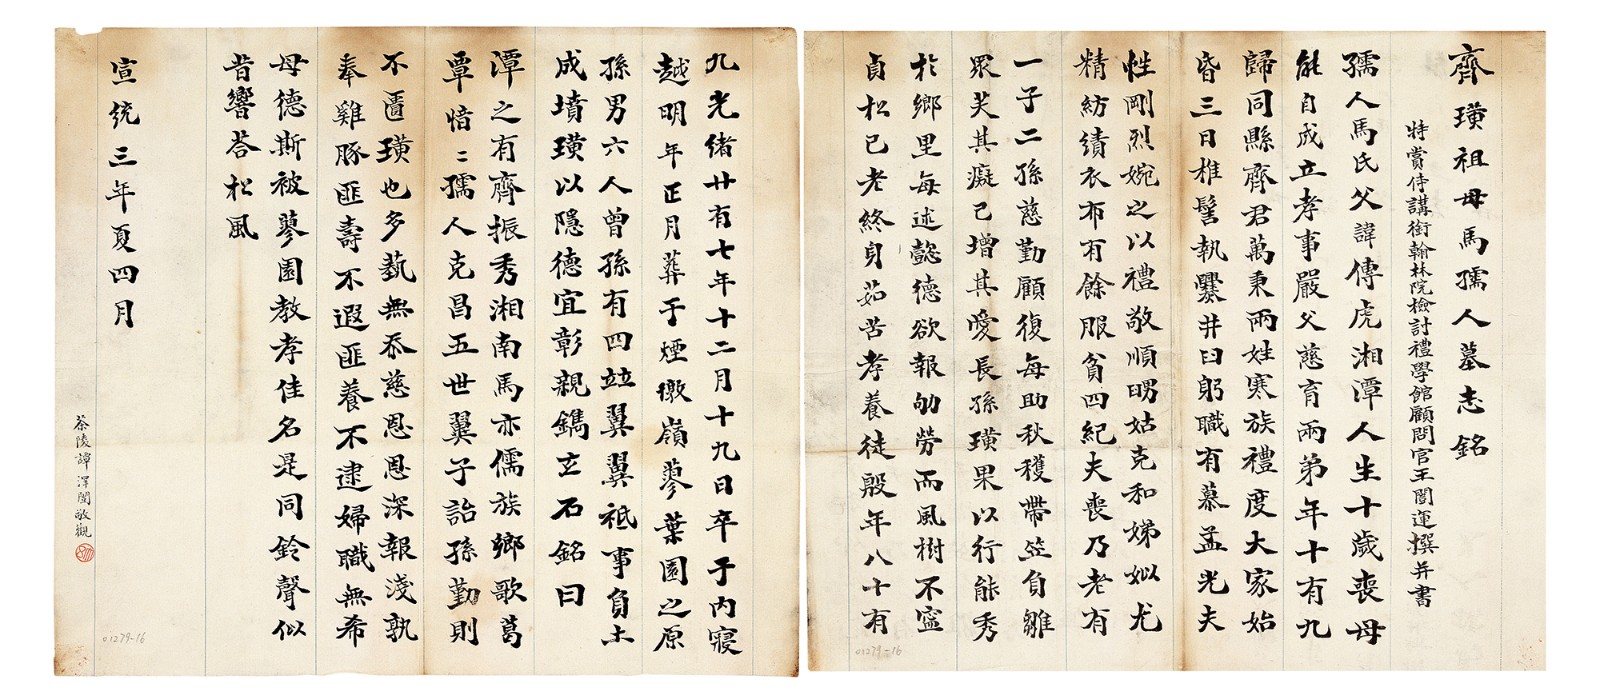 齊璜祖母馬孺人墓志銘
特賞侍講銜翰林院檢討禮學館顧問官王闓運撰并書
孺人馬氏父諱傳虎湘潭人生十歲喪母
能自成立孝事嚴父慈育兩弟年十有九
歸同縣齊君萬秉兩姓寒族禮度大家始
昏三日椎髻執爨井臼躬職有慕孟光夫
性剛烈婉之以禮敬順舅姑克和娣姒尤
精紡績衣布有餘服貧四紀夫喪乃老有
一子二孫慈勤顧復每助秋穫帶笠負雛
眾笑其癡己增其愛長孫璜果以行能秀
於鄉里每述懿德欲報劬勞而風樹不寧
貞松已老終身茹苦孝養徒殷年八十有
九光緒廿有七年十二月十九日卒于內寢
越明年正月葬于煙墩嶺蓼葉園之原
孫男六人曾孫有四竝翼翼祗事負土
成墳璜以隱德宜彰親鐫立石銘曰
潭之有齊振秀湘南馬亦儒族鄉歌葛
覃愔〻孺人克昌五世翼子詒孫勤則
不匱璜也多蓺無忝慈恩恩深報淺孰
奉雞豚匪壽不遐匪養不逮婦職無希
母德斯被蓼園教孝佳名是同鈴聲似
昔響荅松風
宣統三年夏四月
茶陵譚澤闓敬觀
01279-16
01279-16